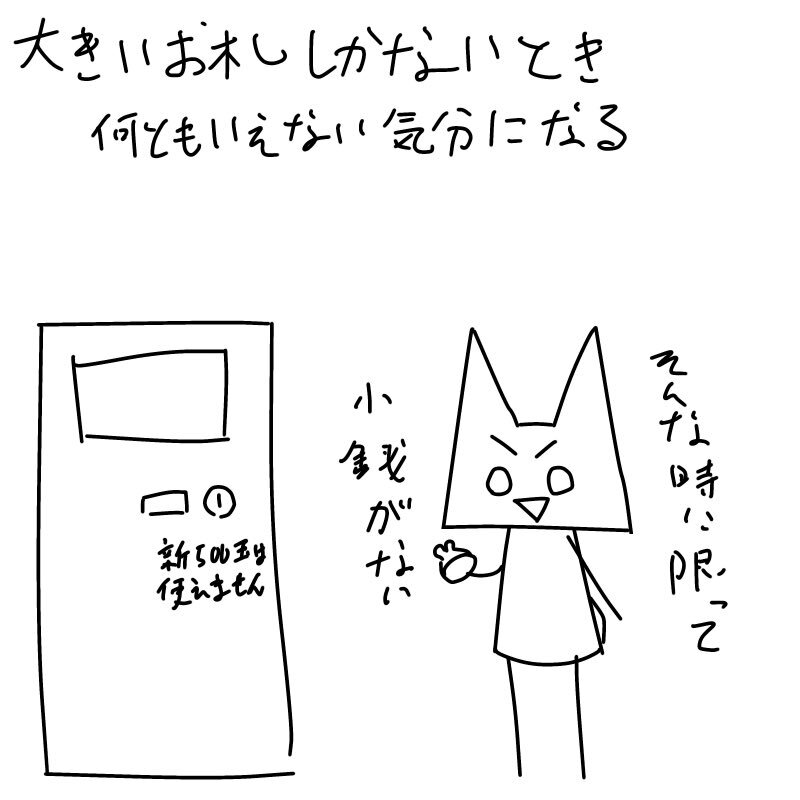 大きいお札しかないとき
何ともいえない気分になる
そんな時に限って
小銭がない
新500玉は
使えません